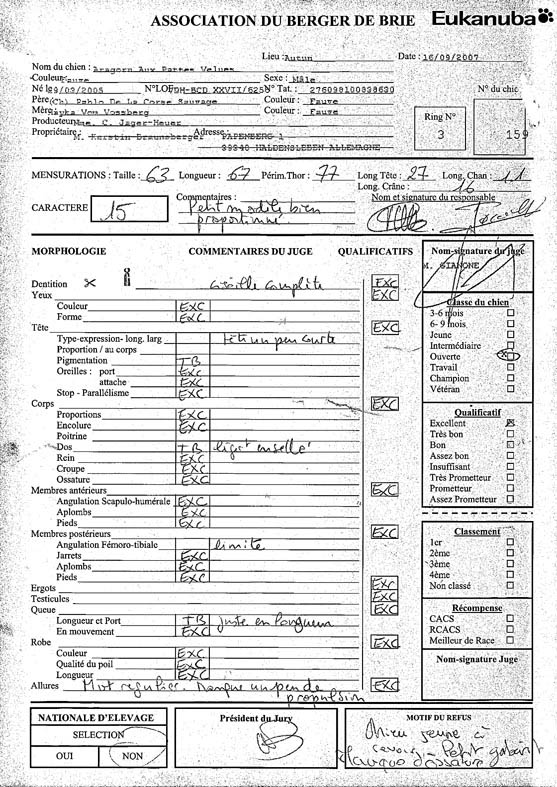 ASSOCIATION DU BERGER DE BRIE Eukanuba
Lieu : Autun Date : 16/09/2007
Nom du chien : Aragorn Aux Pattes Velues
Couleur Fauve Sexe : Mâle
N° Tat. : N° du chic
Père (Ch) Pablo De La Corse Sauvage Couleur : Fauve
Mère Von Vossberg Couleur : Fauve
Producteur me. C. Jager-Meuer Ring N°
Propriétaire : M. Kerstin Braunsberger Adresse PAPENBERG 1 3 159
39340 HALDENSLEBEN ALLEMAGNE
MENSURATIONS : Taille : 63 Longueur : 67 Périm.Thor : 77 Long Tête : 27 Long. Chan : 11
Long. Crâne : 16
CARACTERE 15 Commentaires : Petit modèle bien Nom et signature du responsable
proportionné
MORPHOLOGIE COMMENTAIRES DU JUGE QUALIFICATIFS Nom-signature du juge
M. GIANONE
Dentition cisaille complète EXC
Yeux EXC
Couleur EXC
Forme EXC
Tête EXC
Type-expression- long. larg tête un peu courte
Proportion / au corps
Pigmentation TB
Oreilles : port EXC
attache EXC
Stop - Parallélisme EXC
Corps EXC
Proportions EXC
Encolure EXC
Poitrine
Dos TB légèrt ensellé
Rein EXC
Croupe EXC
Ossature EXC
Membres antérieurs EXC
Angulation Scapulo-humérale EXC
Aplombs EXC
Pieds EXC
Membres postérieurs EXC
Angulation Fémoro-tibiale limite
Jarrets EXC
Aplombs EXC
Pieds EXC
Ergots EXC
Testicules EXC
Queue EXC
Longueur et Port TB juste en longueur
En mouvement EXC
Robe EXC
Couleur EXC
Qualité du poil EXC
Longueur EXC
Allures Mvt régulier. Manque un peu de EXC
propulsion
Classe du chien
3-6 mois
6- 9 mois
Jeune
Intermédiaire
Ouverte X
Travail
Champion
Vétéran
Qualificatif
Excellent X
Très bon
Bon
Assez bon
Insuffisant
Très Prometteur
Prometteur
Assez Prometteur
Classement
1er
2ème
3ème
4ème
Non classé
Récompense
CACS
RCACS
Meilleur de Race
Nom-signature Juge
NATIONALE D'ELEVAGE
SELECTION
OUI NON
Président du Jury
MOTIF DU REFUS
jeune à
revoir - Petit gabarit
Manque d'ossature